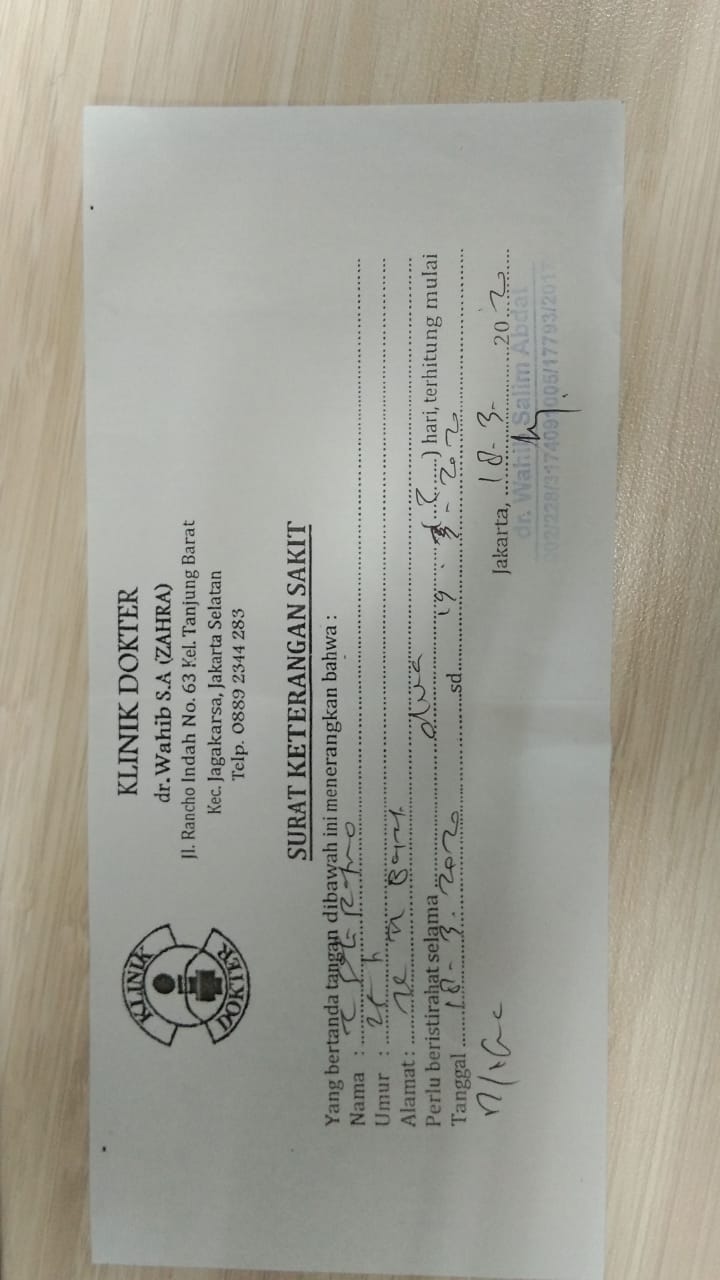 KLINIK DOKTER
KLINIK DOKTER
dr. Wahib S.A (ZAHRA)
Jl. Rancho Indah No. 63 Kel. Tanjung Barat
Kec. Jagakarsa, Jakarta Selatan
Telp. 0889 2344 283
SURAT KETERANGAN SAKIT
Yang bertanda tangan dibawah ini menerangkan bahwa :
Nama :
Umur :
Alamat :
Perlu beristirahat selama dua (2) hari, terhitung mulai
Tanggal 18-3-2020 sd 19-3-20
Jakarta, 18-3-20
dr. Wahib Salim Abdat